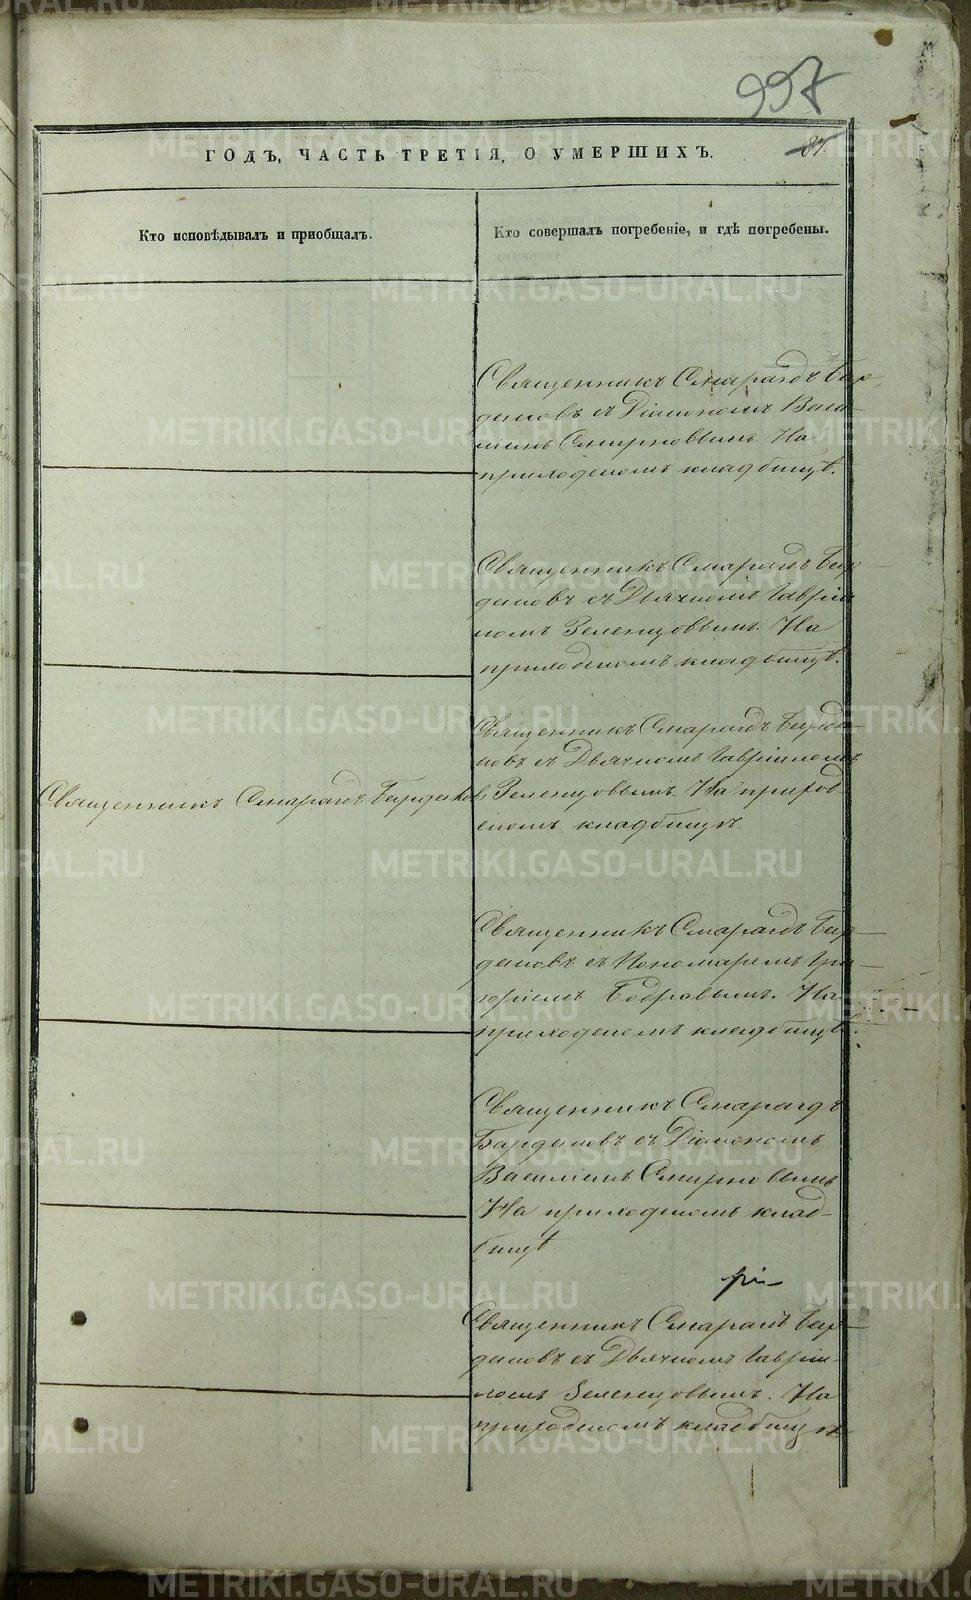 997
87.
ГОДЪ, ЧАСТЬ ТРЕТІЯ, О УМЕРШИХЪ.
Кто исповѣдывалъ и приобщалъ.
Кто совершалъ погребеніе, и гдѣ погребены.
Священникъ Смарагдъ Бар
дановъ съ Діакономъ Васи-
ліемъ Смирновымъ. На
приходскомъ кладбищѣ.
Священникъ Смарагдъ Бар
дановъ съ Дьячкомъ Гавріи
ломъ Зеленцовымъ. На
приходскомъ кладбищѣ.
Священникъ Смарагдъ
Священникъ Смарагдъ Барда
новъ съ Дьячкомъ Гавріиломъ
Зеленцовымъ. На приход
скомъ кладбищѣ.
Священникъ Смарагдъ Бар
дановъ съ Пономаремъ Гри
горіемъ На
приходскомъ кладбищѣ.
Священникъ Смарагдъ
Бардановъ съ Діакономъ
Василіемъ Смирновымъ
На приходскомъ клад-
бищѣ
Священникъ Смарагдъ Бар
дановъ съ Дьячкомъ Гавріи-
ломъ Зеленцовымъ. На
приходскомъ кладбищѣ
METRIKI.GASO-URAL.RU